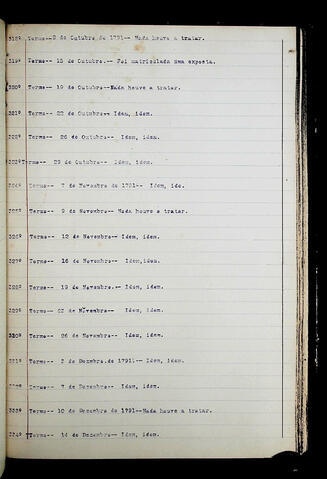 318º Termo--8 de Outubro de 1791-- Nada houve a tratar.
319º Termo-- 15 de Outubro.-- Foi matriculada uma exposta.
320º Termo-- 19 de Outubro--Nada houve a tratar.
321º Termo-- 22 de Outubro-- Idem, idem.
322º Termo-- 26 de Outubro-- Idem, idem.
323ºTermo-- 29 de Outubro-- Idem, idem.
324º Termo-- 7 de Novembro de 1791-- Idem, ide.
325º Termo-- 9 de Novembro-- Nada houve a tratar.
326º Termo-- 12 de Novembro-- Idem, idem.
327º Termo-- 16 de Novembro-- Idem,idem.
328º Termo-- 19 de Novembro.-- Idem, idem.
329º Termo-- 23 de Novembro-- Idem, idem.
330º Termo-- 26 de Novembro-- Idem, idem.
331º Termo-- 2 de Dezembro.de 1791.-- Idem, idem.
332º Termo-- 7 de Dezembro-- Idem, idem.
333º Termo-- 10 de Dezembro de 1791--Nada houve a tratar.
334º Termo-- 14 de Dezembro-- Idem, idem.